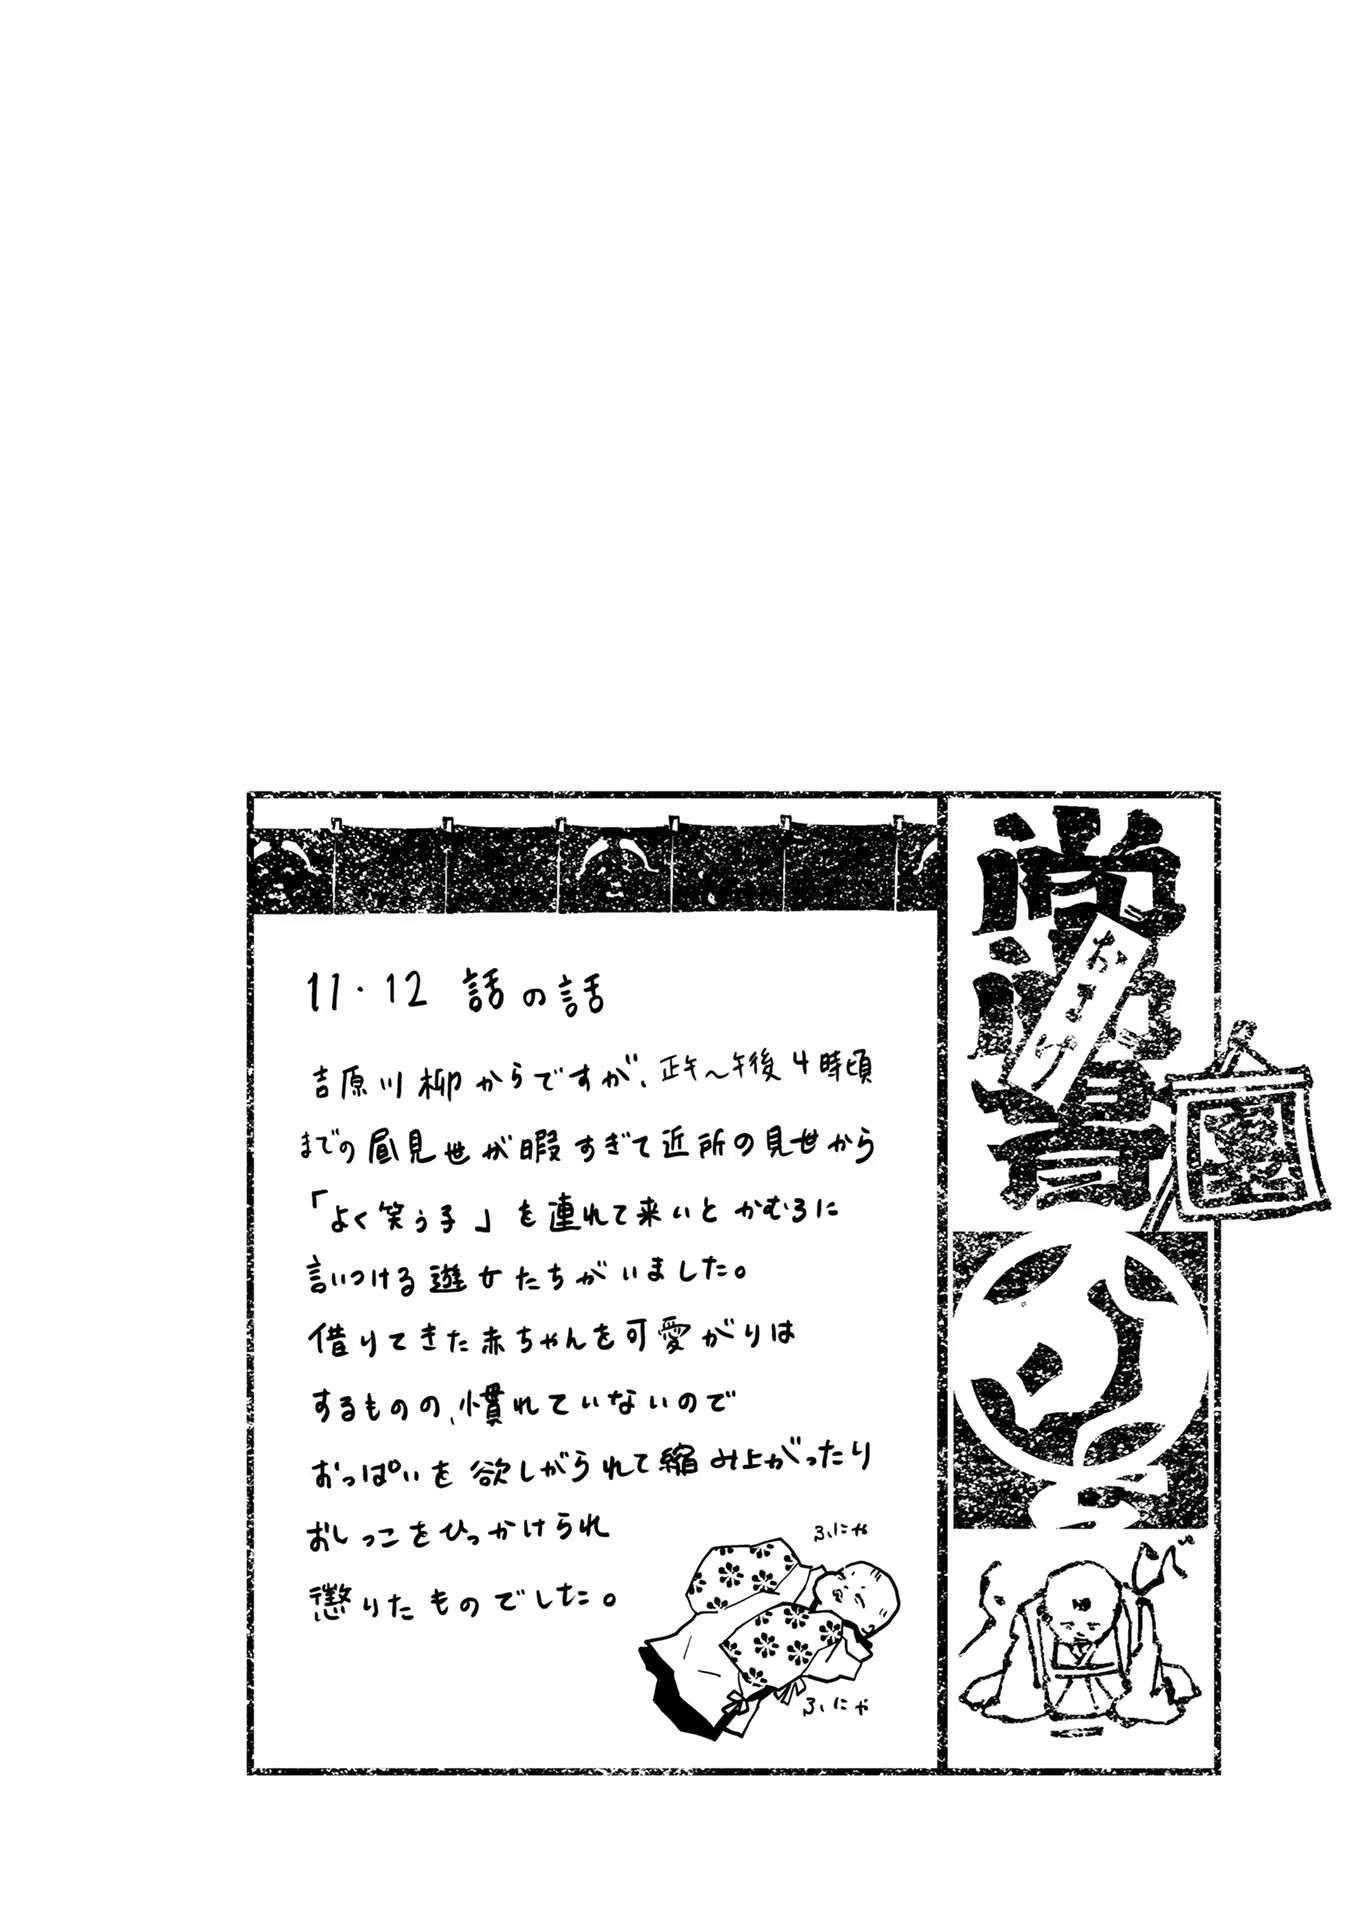 おまけ
11・12話の話
吉原川柳からですが、正午〜午後4時頃
までの昼見世が暇すぎて近所の見世から
「よく笑う子」を連れて来いとかむろに
言いつける遊女たちがいました。
借りてきた赤ちゃんを可愛がりは
するものの、慣れていないので
おっぱいを欲しがられて縮み上がったり
おしっこをひっかけられ
懲りたものでした。
ふにゃ
ふにゃ